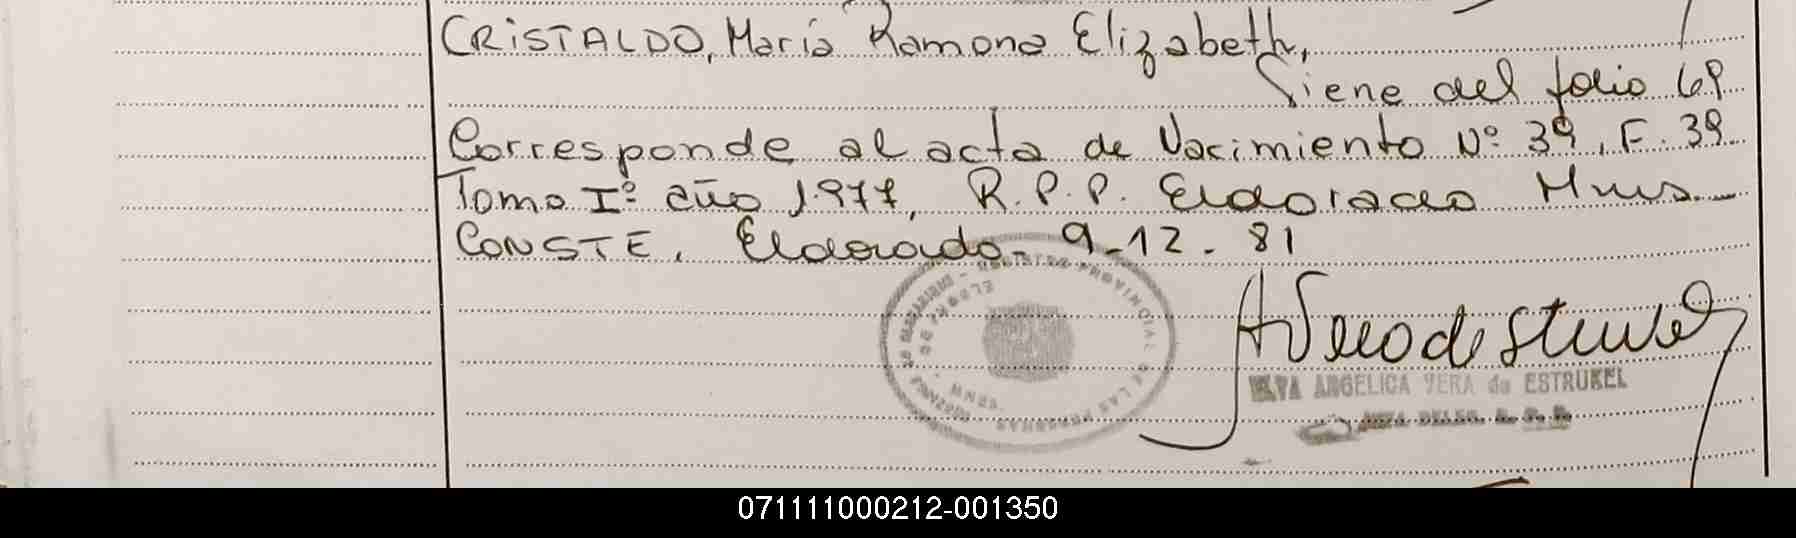 CRISTALDO, María Ramona Elizabeth,
Viene del folio 69
Corresponde al acta de Nacimiento Nº 39, F. 39
Tomo Iº año 1.977, R.P.P. Eldorado Mnes.
CONSTE, Eldorado- 9-12-81
REGISTRO PROVINCIAL DE LAS PERSONAS
ELDORADO
MNES.
ANGELICA VERA de ESTRUKEL
071111000212-001350